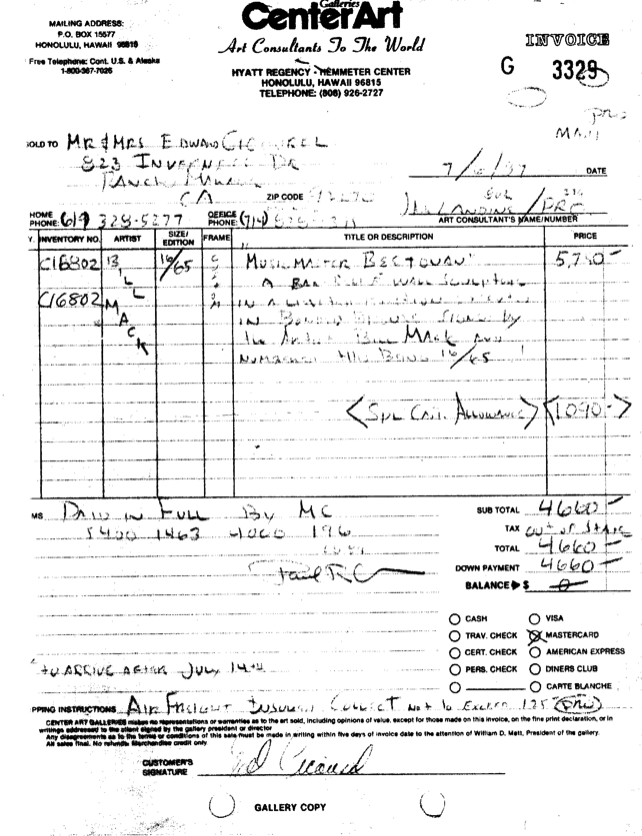 Galleries
CenterArt
Art Consultants To The World
HYATT REGENCY • HEMMETER CENTER
HONOLULU, HAWAII 96815
TELEPHONE: (808) 926-2727
MAILING ADDRESS:
P.O. BOX 15577
HONOLULU, HAWAII 96815
Free Telephone: Cont. U.S. & Alaska
1-800-367-7026
INVOICE
G 3329
SOLD TO MR & MRS EDWARD
823 INVERNESS DR
RANCHO MIRAGE
CA ZIP CODE
7/6/87 DATE
HOME PHONE: (619) 328-5277 OFFICE PHONE: (714)
ART CONSULTANT'S NAME/NUMBER
Y. INVENTORY NO. ARTIST SIZE/EDITION FRAME TITLE OR DESCRIPTION PRICE
C16802 BILL MACK 16/65 MUSICMASTER 5,750-
C16802 A WALL SCULPTURE
IN A
IN BONDED SIGNED by
THE ARTIST BILL MACK AND
NUMBERED 16/65
<SPL ALLOWANCE> <1090->
MS PAID IN FULL By MC
5400 1463 4060 196
SUB TOTAL 4660-
TAX OUT OF STATE
TOTAL 4660-
DOWN PAYMENT 4660-
BALANCE $ 0
CASH VISA
TRAV. CHECK MASTERCARD
CERT. CHECK AMERICAN EXPRESS
PERS. CHECK DINERS CLUB
CARTE BLANCHE
TO ARRIVE AFTER JULY 14th
PPING INSTRUCTIONS AIR FREIGHT COLLECT NOT to EXCEED 125
CENTER ART GALLERIES makes no representations or warranties as to the art sold, including opinions of value, except for those made on this invoice, on the fine print declaration, or in
writings addressed to the client signed by the gallery president or director
Any disagreements as to the terms or conditions of this sale must be made in writing within five days of invoice date to the attention of William D. Mett, President of the gallery.
All sales final. No refunds Merchandise credit only
CUSTOMER'S SIGNATURE
GALLERY COPY